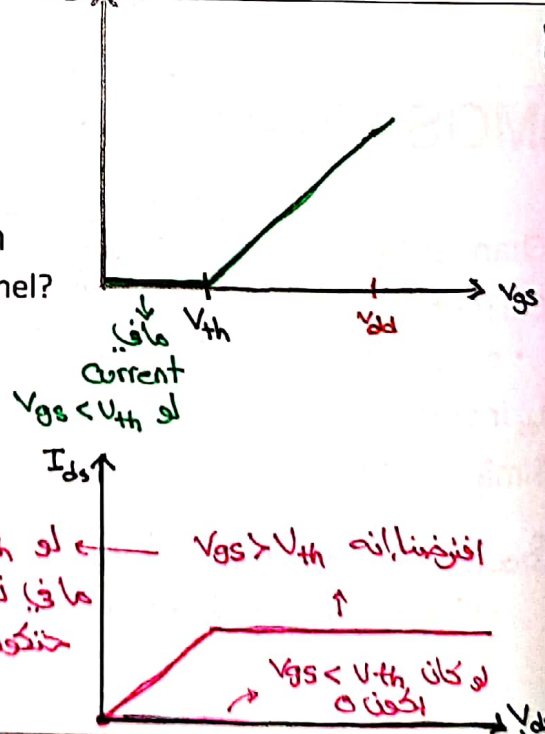 nel?
Vgs
Vth
Vdd
مافي
current
لو Vgs < Vth
Ids
افترضنا انه Vgs > Vth
لو
ما في
لو كان Vgs < Vth